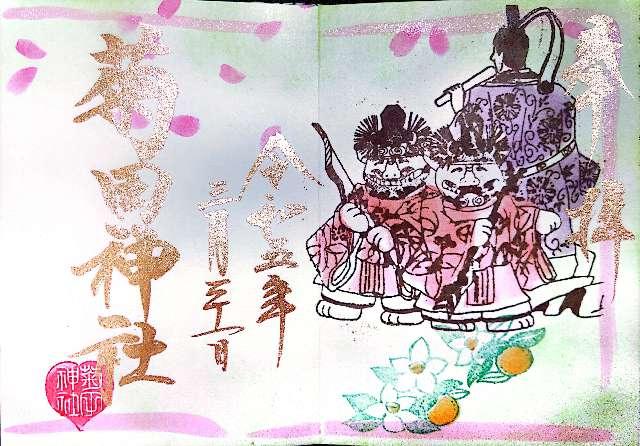 奉拝
令和五年
三月三十一日
菊田神社
菊田
神社